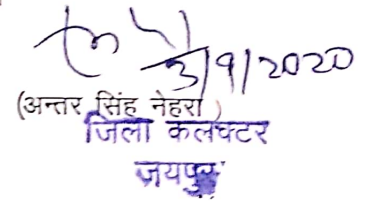 3/9/2020
(अन्तर सिंह नेहरा)
जिला कलक्टर
जयपुर